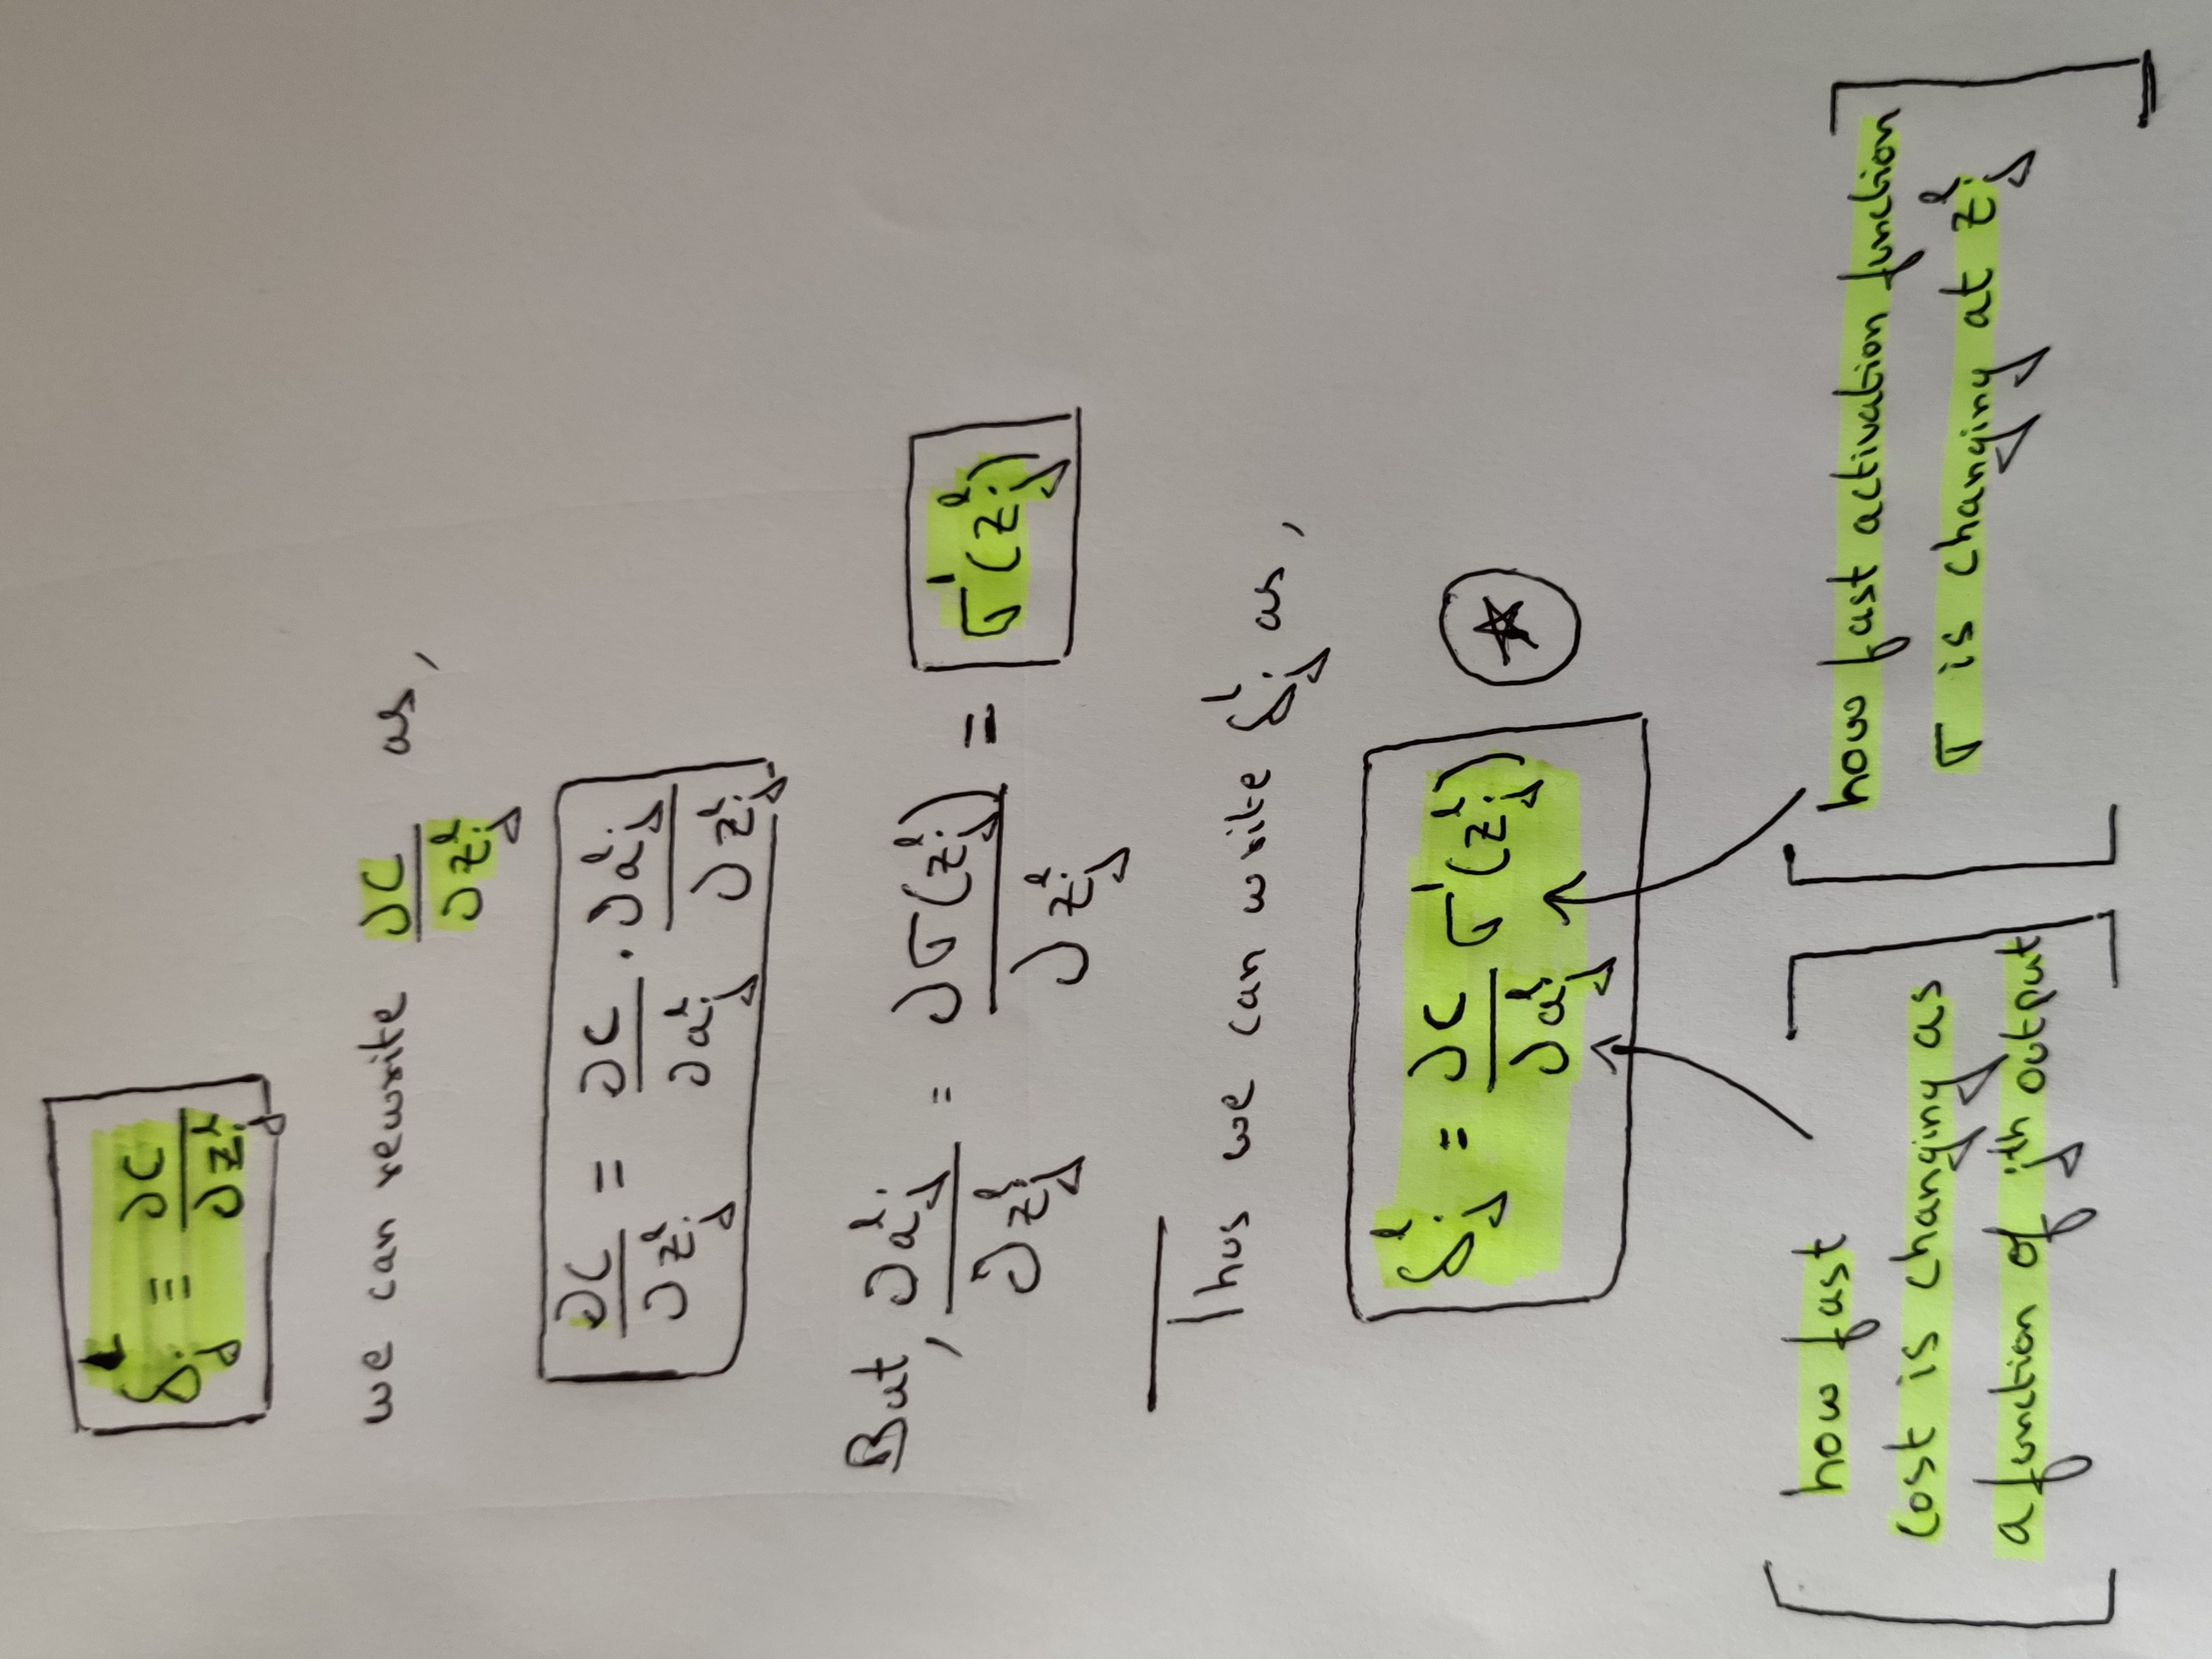 δⱼˡ ≡ ∂C/∂zⱼˡ
we can rewrite ∂C/∂zⱼˡ as,
∂C/∂zⱼˡ = ∂C/∂aⱼˡ . ∂aⱼˡ/∂zⱼˡ
But, ∂aⱼˡ/∂zⱼˡ = ∂σ(zⱼˡ)/∂zⱼˡ = σ'(zⱼˡ)
Thus we can write δⱼˡ as,
δⱼˡ = ∂C/∂aⱼˡ σ'(zⱼˡ)
how fast
cost is changing as
a function of jth output
how fast activation function
σ is changing at zⱼˡ